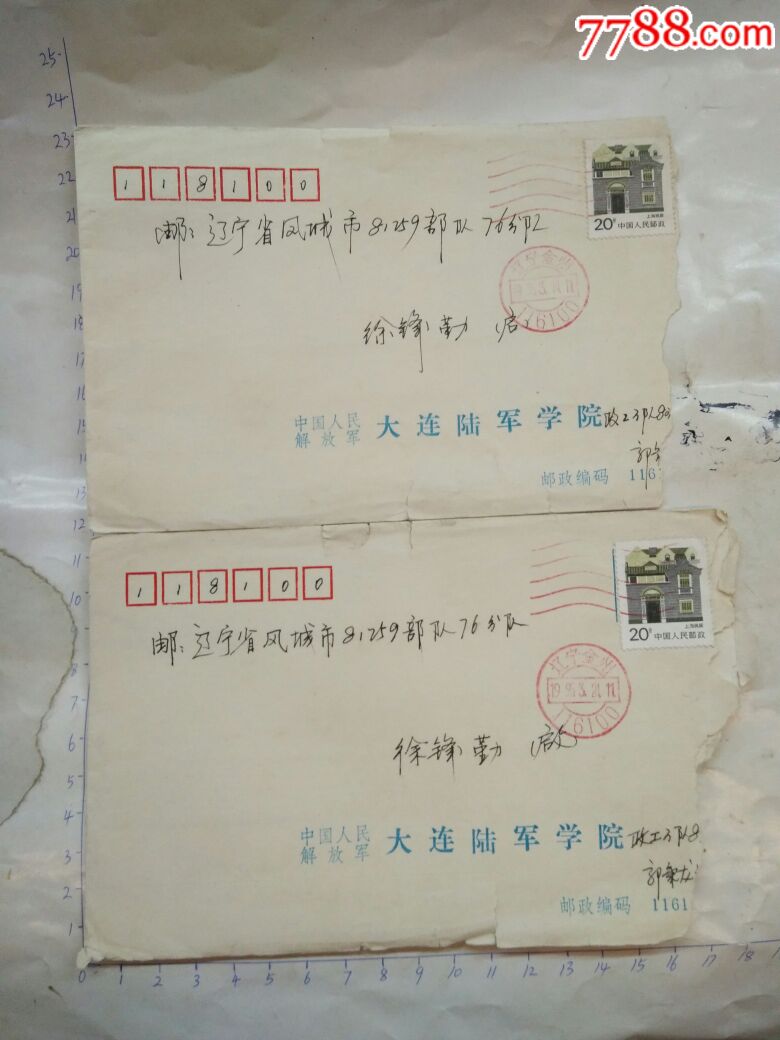 7788.com
25
24
23
22
21
20
19
18
17
16
15
14
13
12
11
10
9
8
7
6
5
4
3
2
1
0 1 2 3 4 5 6 7 8 9 10 11 12 13 14 15 16 17 18
118100
上海民居
20分 中国人民邮政
邮：辽宁省凤城市81259部队76分队
辽宁金州
116100
徐锋勤 启
中国人民
解放军 大连陆军学院 政工3队8
郭
邮政编码 116
118100
上海民居
20分 中国人民邮政
邮：辽宁省凤城市81259部队76分队
辽宁金州
1995.3.21.11
116100
徐锋勤 启
中国人民
解放军 大连陆军学院 政工3队8
郭 龙
邮政编码 1161